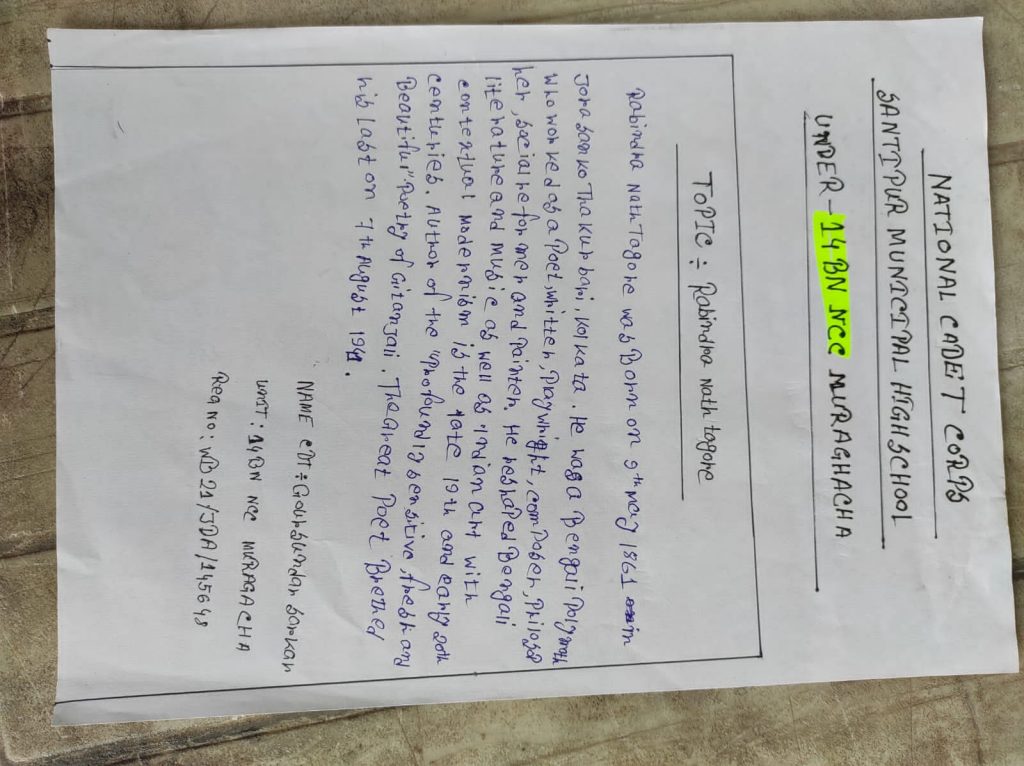 NATIONAL CADET CORPS
SANTIPUR MUNICIPAL HIGH SCHOOL
UNDER - 14 BN NCC MURAGHACHA
TOPIC ÷ Rabindra Nath tagore
Rabindra Nath Tagore was Born on 9th may 1861 in
Jorasanko Thakurbari, Kolkata. He was a Bengali Polymath
who worked as a Poet, writter, Playwright, composer, Philosop
her, social reformer and Painter. He reshaped Bengali
literature and music as well as Indian art with
contextual modernism is the late 19th and early 20th
centuries. Author of the "Profoundly sensitive, fresh and
Beautiful" Poetry of Gitanjali. The Great Poet Brethed
his last on 7th August 1941.
NAME CDT ÷ Goursundar Sarkar
UNIT : 14 BN NCC MURAGACHA
Reg no : WB21/JDA/145648